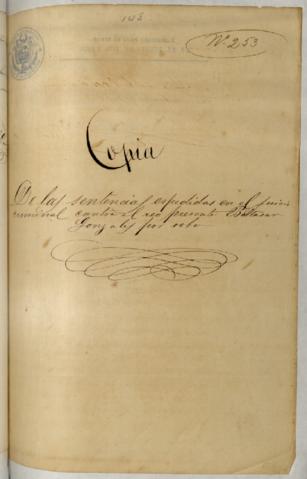 143
Nº 253
Copia
De las sentencias espedidas en el juicio
criminal contra el reo presente Baltazar
Gonzales por robo